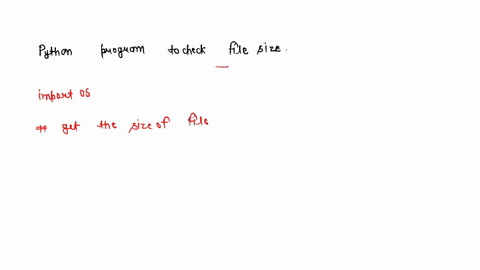 Python program to check file size.
import OS
# get the size of file